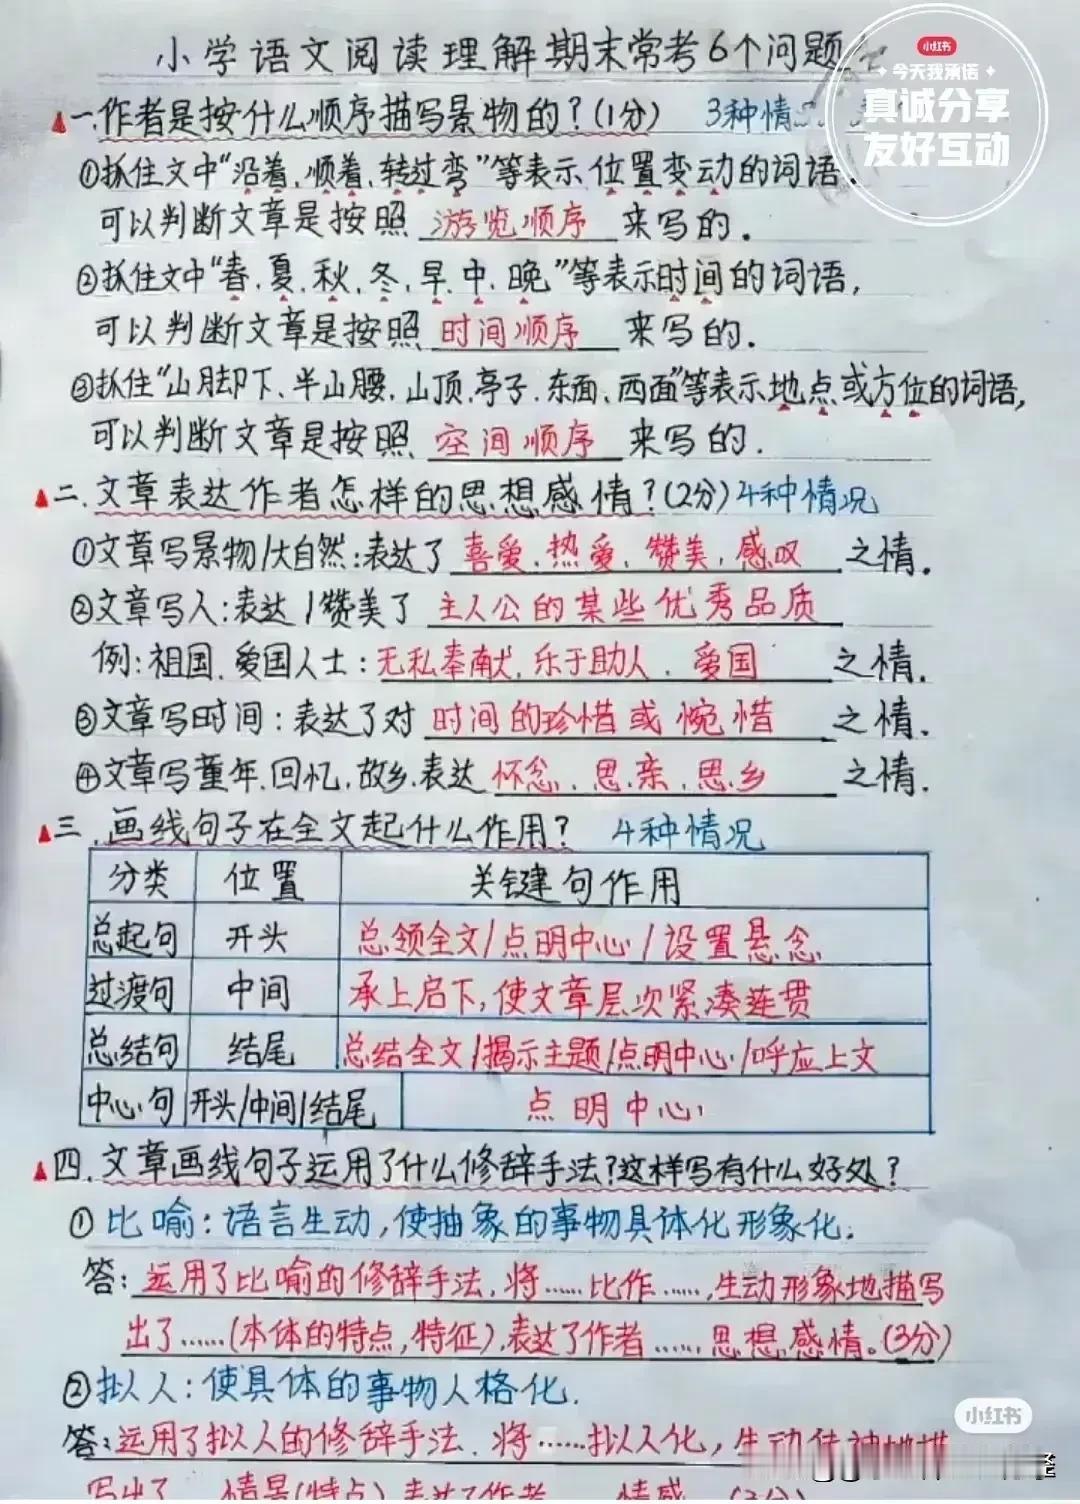 小学语文阅读理解期末常考6个问题
小红书
今天我承诺
真诚分享
友好互动
一.作者是按什么顺序描写景物的?(1分) 3种情
①抓住文中“沿着、顺着、转过弯”等表示位置变动的词语.
可以判断文章是按照 游览顺序 来写的.
②抓住文中“春.夏.秋.冬.早.中.晚”等表示时间的词语,
可以判断文章是按照 时间顺序 来写的.
③抓住“山脚下、半山腰.山顶.亭子.东面、西面”等表示地点或方位的词语,
可以判断文章是按照 空间顺序 来写的.
二.文章表达作者怎样的思想感情?(2分)4种情况
①文章写景物/大自然:表达了 喜爱.热爱、赞美,感叹 之情.
②文章写人:表达/赞美了 主人公的某些优秀品质
例:祖国、爱国人士:无私奉献,乐于助人.爱国 之情.
③文章写时间:表达了对 时间的珍惜或惋惜 之情.
④文章写童年.回忆,故乡.表达 怀念、思亲.思乡 之情.
三.画线句子在全文起什么作用? 4种情况
分类 位置 关键句作用
总起句 开头 总领全文/点明中心/设置悬念
过渡句 中间 承上启下,使文章层次紧凑连贯
总结句 结尾 总结全文/揭示主题/点明中心/呼应上文
中心句 开头/中间/结尾 点明中心
四.文章画线句子运用了什么修辞手法?这样写有什么好处?
①比喻:语言生动,使抽象的事物具体化形象化.
答:运用了比喻的修辞手法,将……比作……,生动形象地描写
出了……(本体的特点,特征),表达了作者……思想感情。(3分)
②拟人:使具体的事物人格化.
小红书
答:运用了拟人的修辞手法.将……拟人化,生动传神地描
写出了 情景(特点)表达了作者 情感 (3分)